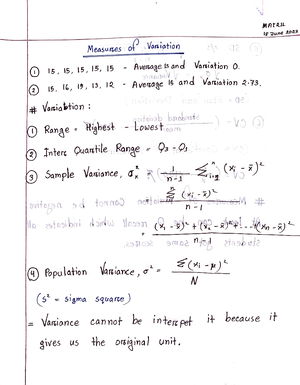 MAT211
18 June 2023
Measures of Variation
① 15, 15, 15, 15, 15 - Average 15 and Variation 0.
② 15, 16, 19, 13, 12 - Average 15 and Variation 2.73.
# Variation :
① Range = Highest - Lowest
② Inter Quartile Range = Q₃ - Q₁
③ Sample Variance, = 1/(n-1) Σ (xi - x̄)²
= Σ (xi - x̄)² / n-1
= (xi - x̄)² + (x₂ - x̄)² + ... + (xn - x̄)² / n-1
④ Population Variance, σ² = Σ(xi - μ)² / N
(s² = sigma square)
= Variance cannot be interpet it because it
gives us the original unit.